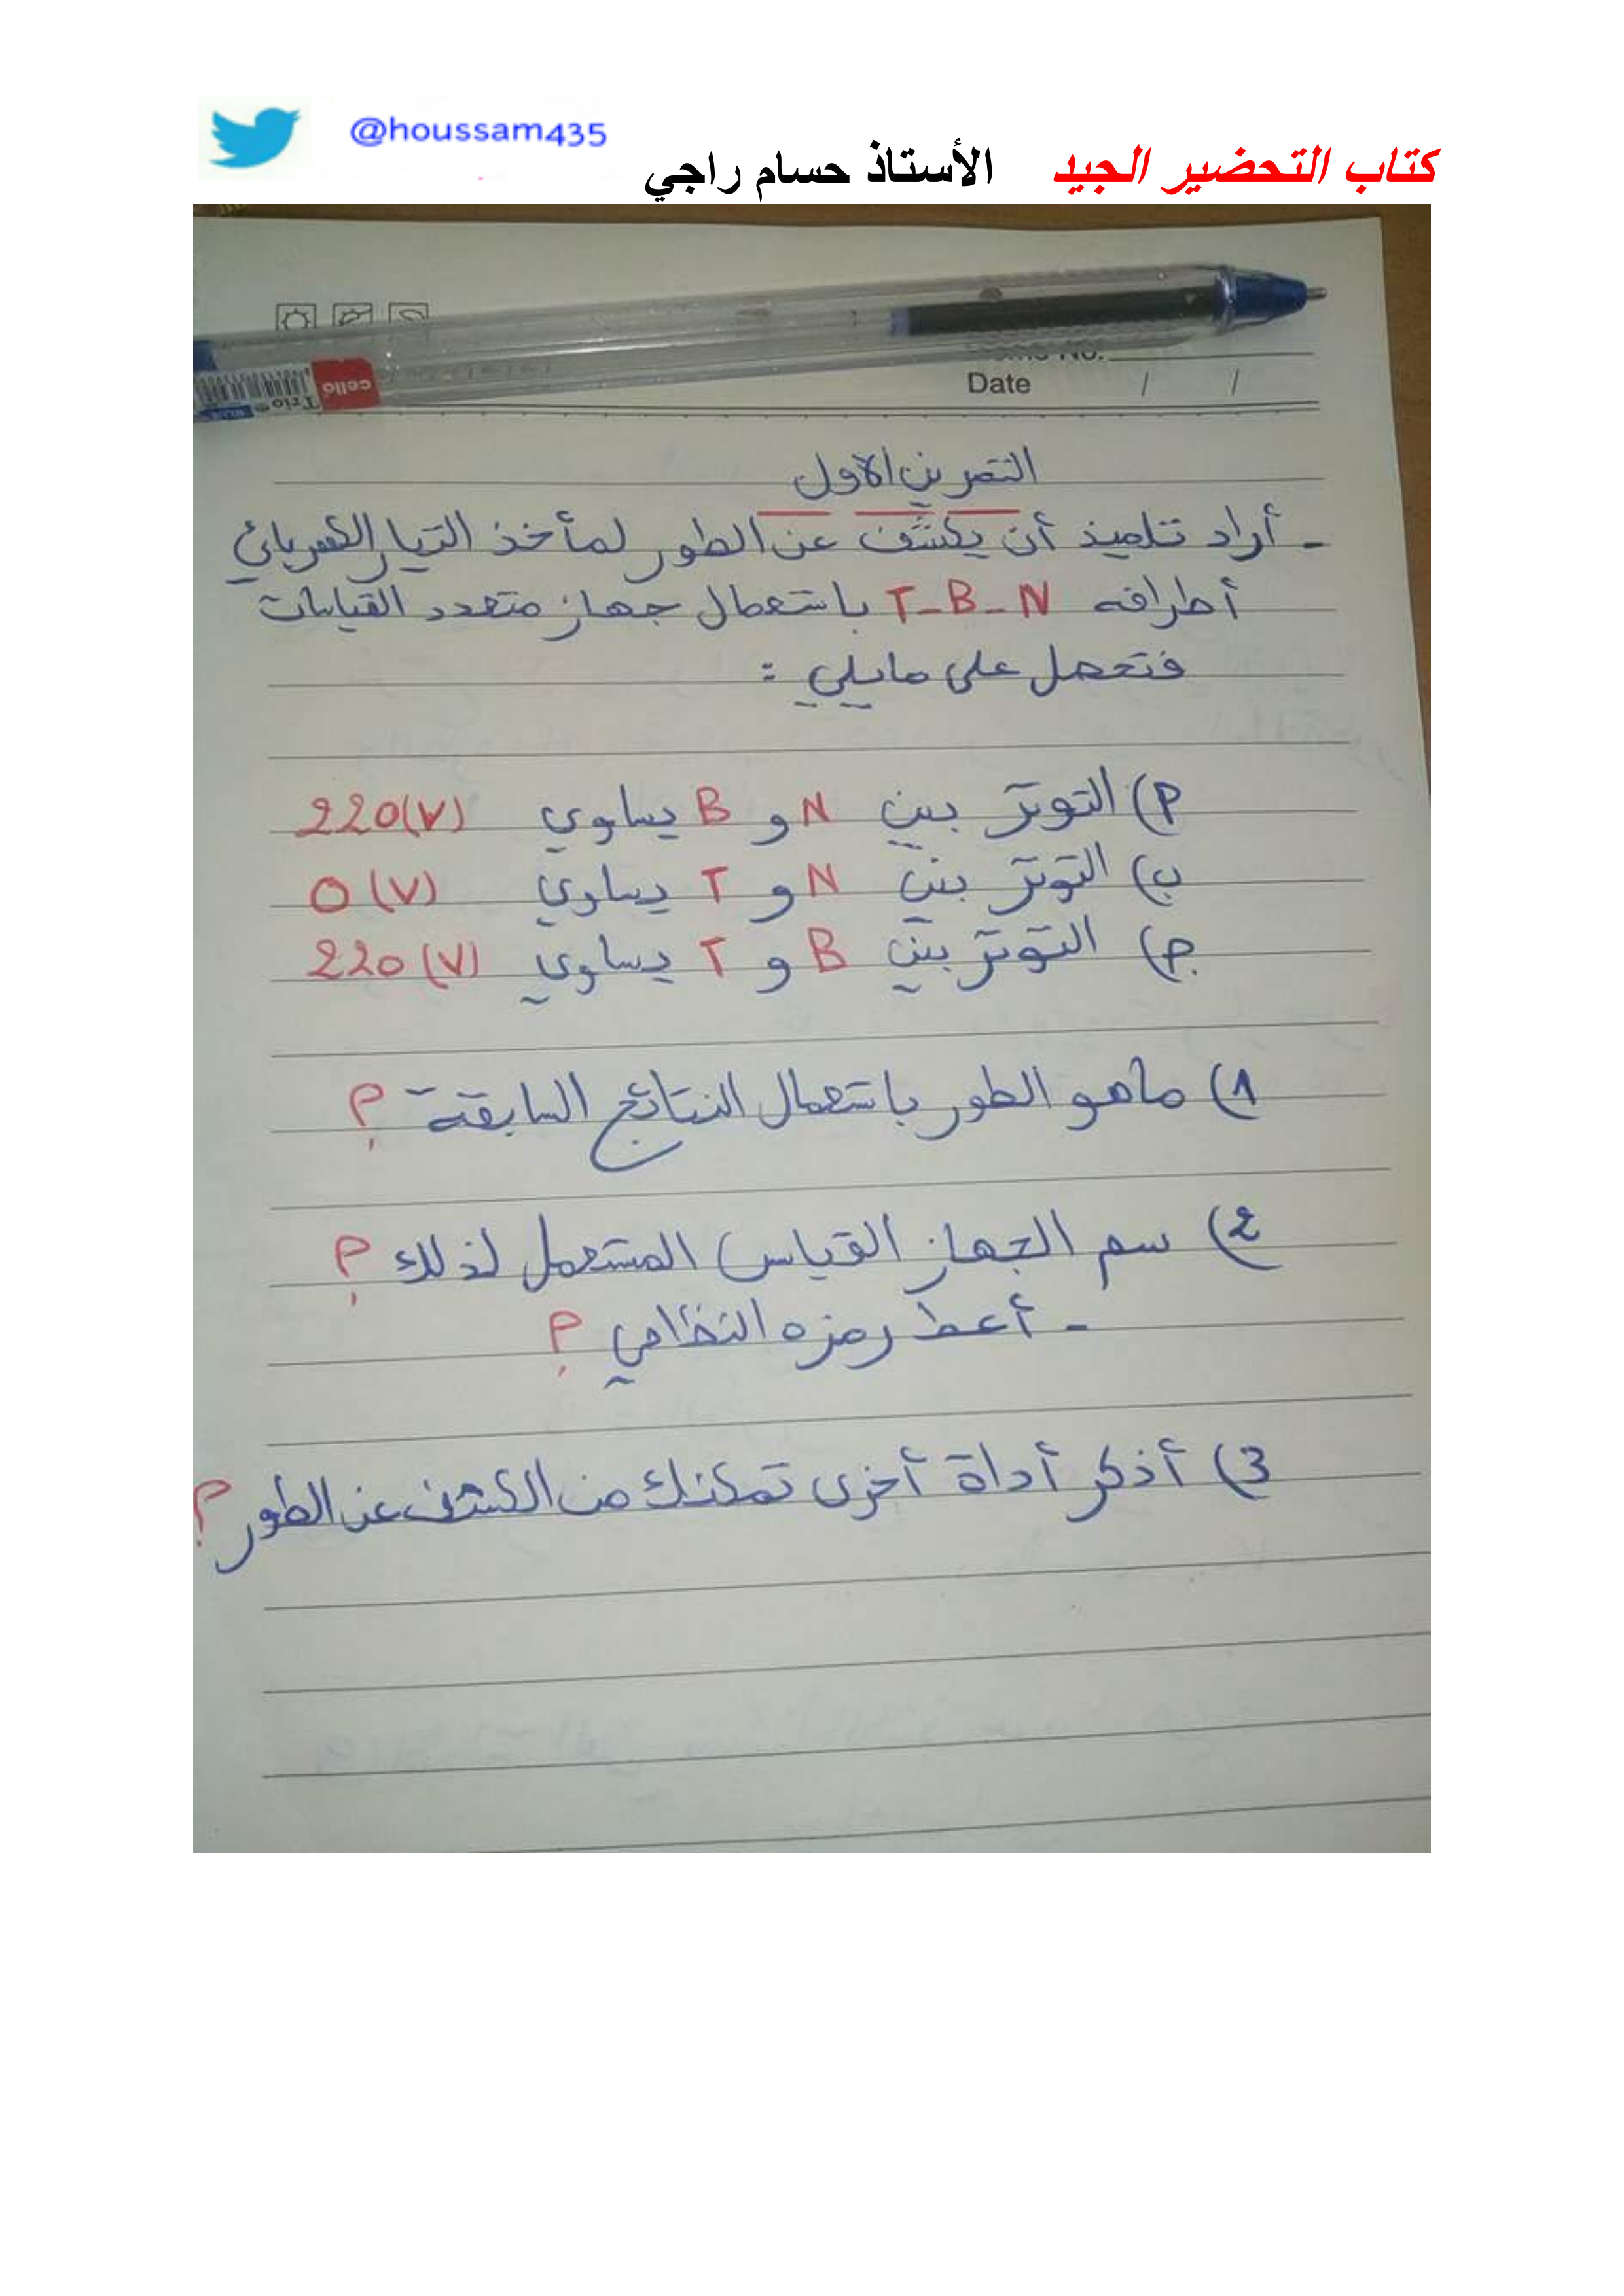 @houssam435
كتاب التحضير الجيد الأستاذ حسام راجي
cello
Trio
BLUE
Date / /
التمرين الأول
- أراد تلميذ أن يكشف عن الطور لمأخذ التيار الكهربائي
أطرافه T-B-N باستعمال جهاز متعدد القياسات
فتحصل على مايلي :
أ) التوتر بين N و B يساوي 220(V)
ب) التوتر بين N و T يساوي 0(V)
ج) التوتر بين B و T يساوي 220(V)
1) ماهو الطور باستعمال النتائج السابقة ؟
2) سم الجهاز القياس المستعمل لذلك ؟
- أعط رمزه النظامي ؟
3) أذكر أداة أخرى تمكنك من الكشف عن الطور ؟